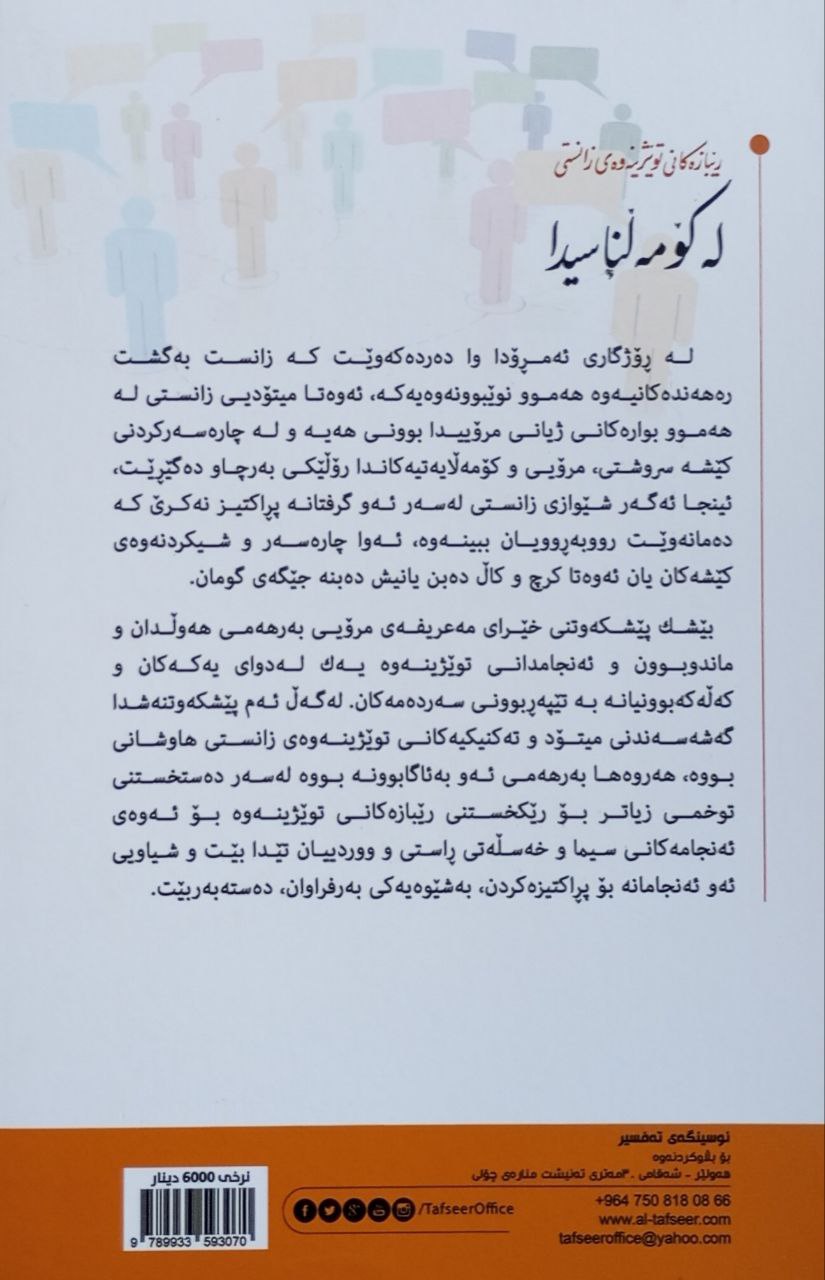 رێبازەکانی توێژینەوەی زانستی
لە کۆمەڵناسیدا
لە ڕۆژگاری ئەمڕۆدا وا دەردەکەوێت کە زانست بەگشت
رەهەندەکانیەوە هەموو نوێبوونەوەیەکە، ئەوەتا میتۆدیی زانستی لە
هەموو بوارەکانی ژیانی مرۆییدا بوونی هەیە و لە چارەسەرکردنی
کێشە سروشتی، مرۆیی و کۆمەڵایەتیەکاندا رۆڵێکی بەرچاو دەگێڕێت،
ئینجا ئەگەر شێوازی زانستی لەسەر ئەو گرفتانە پڕاکتیز نەکرێ کە
دەمانەوێت رووبەڕوویان ببینەوە، ئەوا چارەسەر و شیکردنەوەی
کێشەکان یان ئەوەتا کرچ و کاڵ دەبن یانیش دەبنە جێگەی گومان.
بێشك پێشکەوتنی خێرای مەعریفەی مرۆیی بەرهەمی هەوڵدان و
ماندوبوون و ئەنجامدانی توێژینەوە یەك لەدوای یەکەکان و
کەڵەکەبوونیانە بە تێپەڕبوونی سەردەمەکان. لەگەڵ ئەم پێشکەوتنەشدا
گەشەسەندنی میتۆد و تەکنیکیەکانی توێژینەوەی زانستی هاوشانی
بووە، هەروەها بەرهەمی ئەو بەئاگابوونە بووە لەسەر دەستخستنی
توخمی زیاتر بۆ رێکخستنی رێبازەکانی توێژینەوە بۆ ئەوەی
ئەنجامەکانی سیما و خەسڵەتی ڕاستی و ووردییان تێدا بێت و شیاویی
ئەو ئەنجامانە بۆ پڕاکتیزەکردن، بەشێوەیەکی بەرفراوان، دەستەبەربێت.
نوسینگەی تەفسیر
بۆ بڵاوکردنەوە
هەولێر - شەقامی ٣٠مەتری تەنیشت منارەی چۆلی
+964 750 818 08 66
www.al-tafseer.com
tafseeroffice@yahoo.com
/TafseerOffice
نرخی 6000 دینار
9 789933 593070